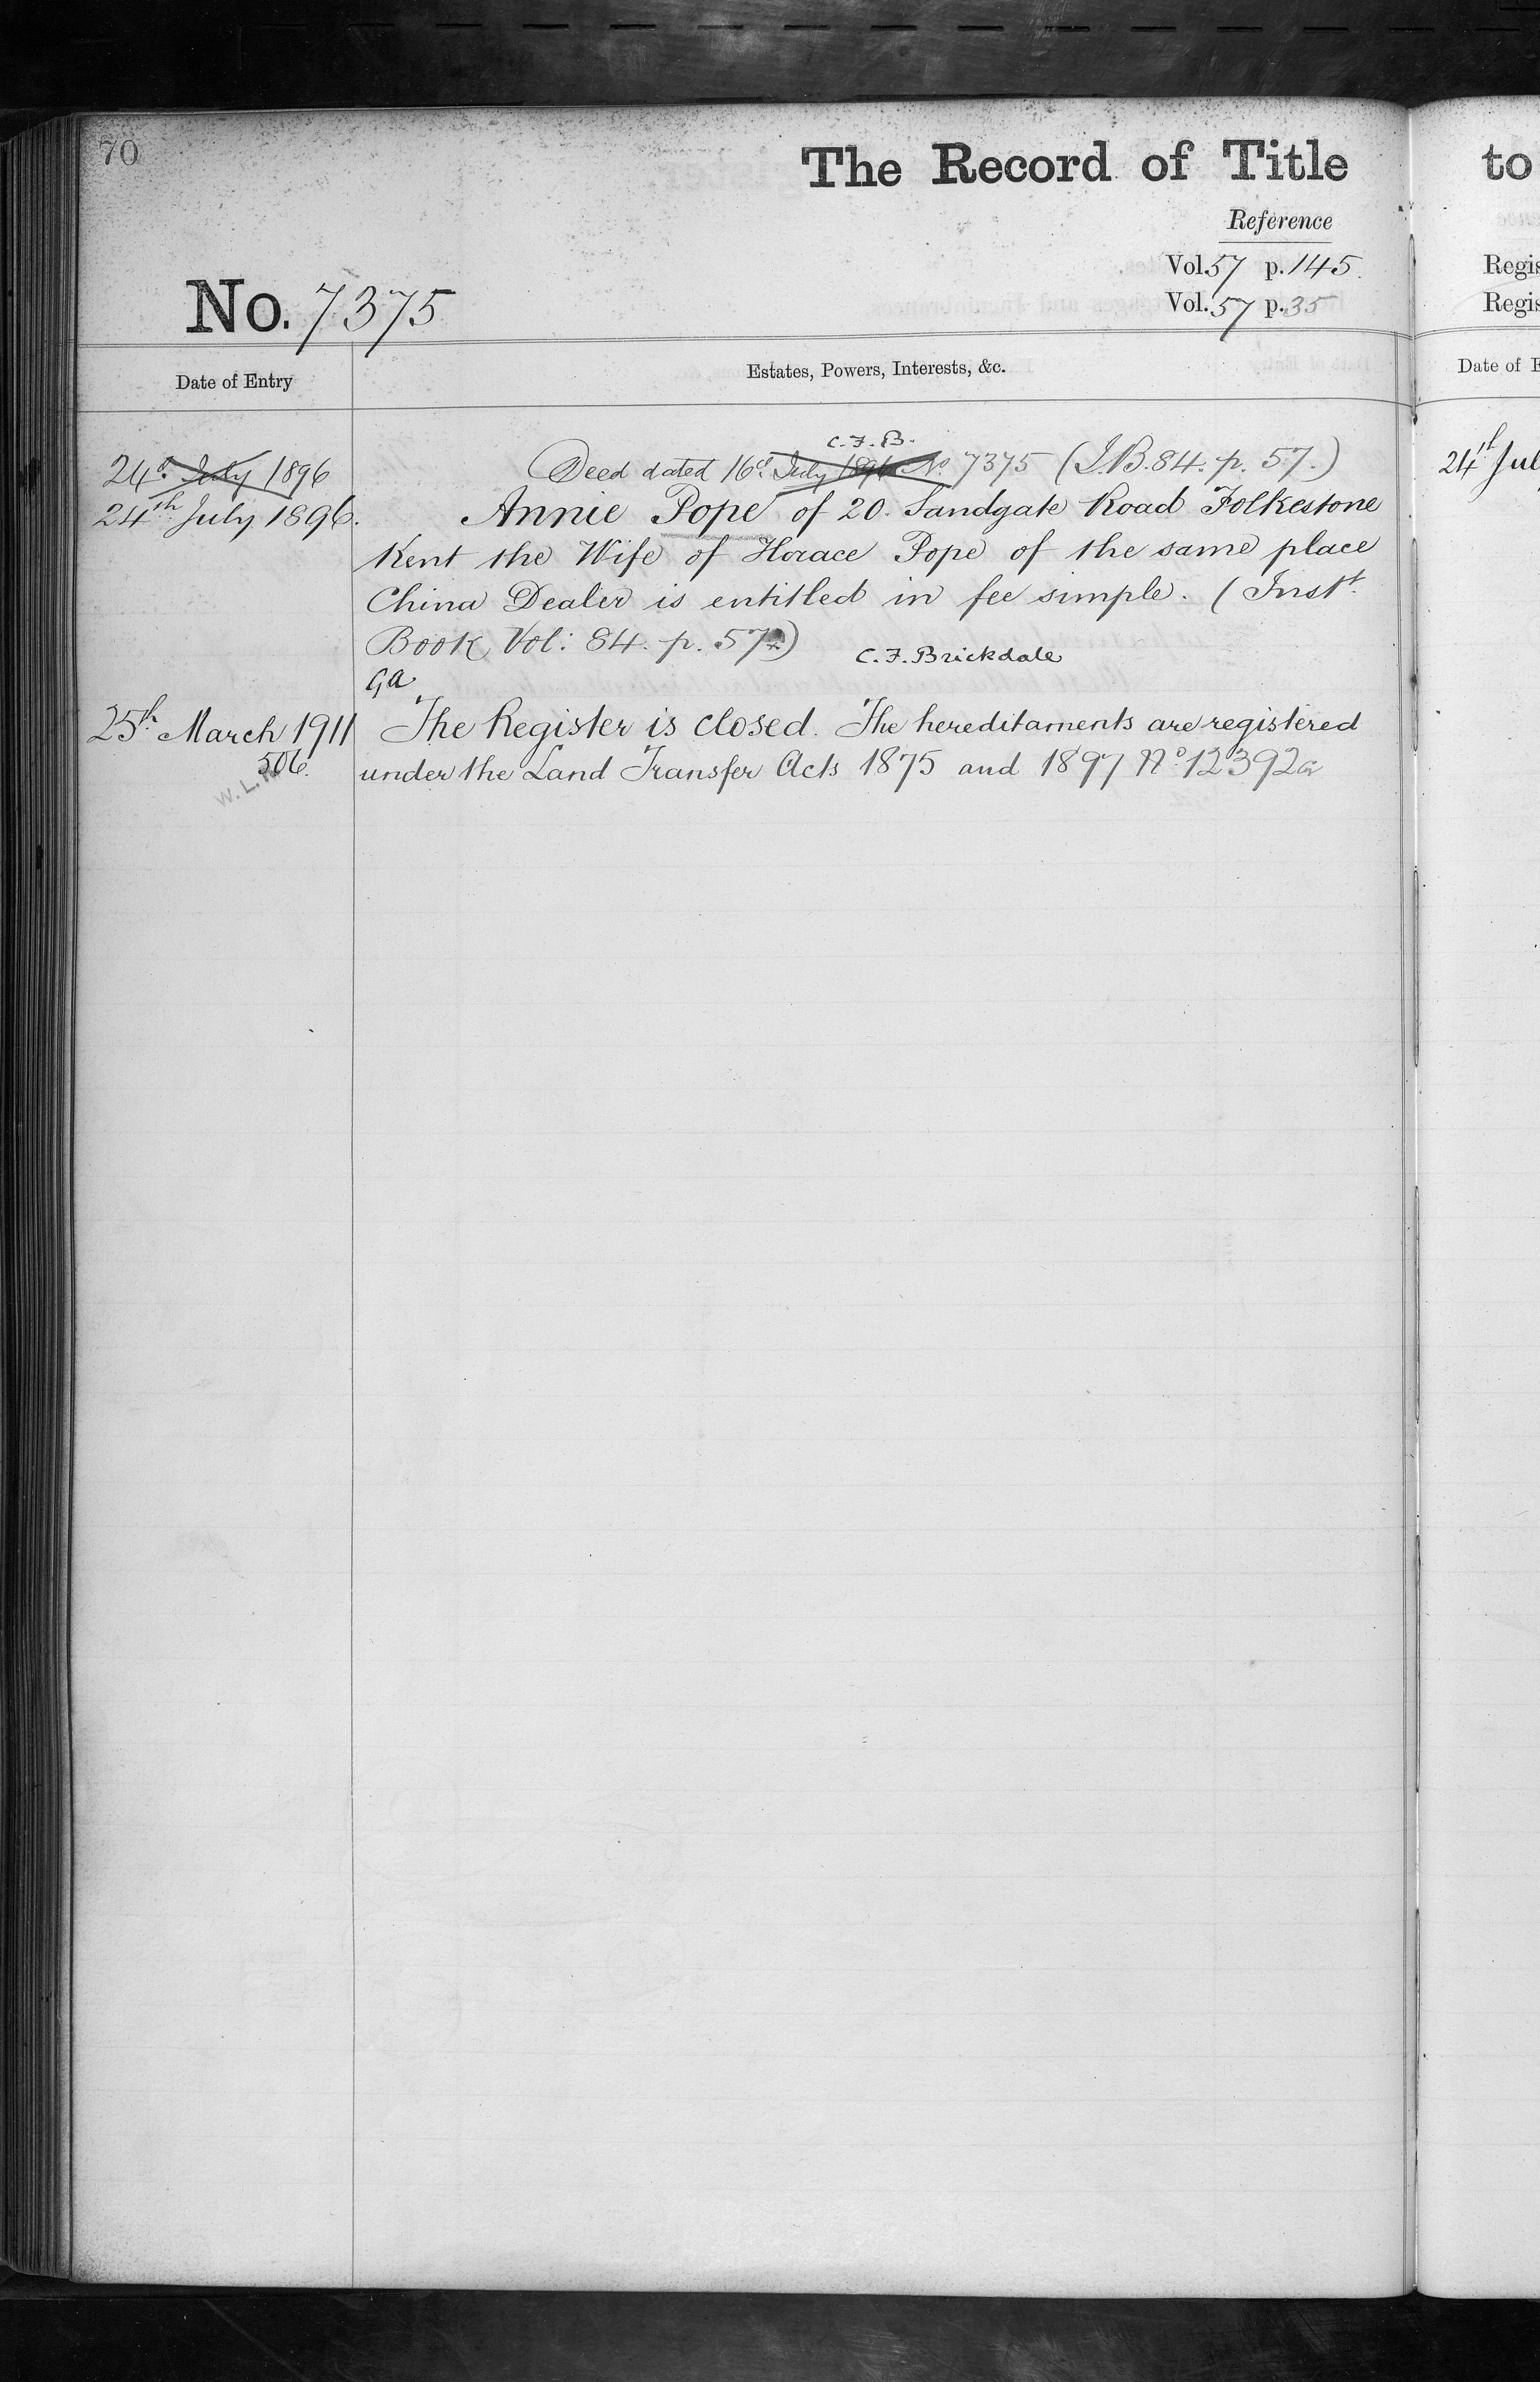 70
The Record of Title
Reference
Vol. 57 p. 145.
No. 7375
Vol. 57 p. 35
Date of Entry
Estates, Powers, Interests, &c.
C.F.B.
24th July 1896
Deed dated 16th July 1896 No. 7375 (I.B. 84. p. 57.)
24th July 1896.
Annie Pope of 20. Sandgate Road Folkestone
Kent the Wife of Horace Pope of the same place
China Dealer is entitled in fee simple. (Inst.
Book Vol: 84. p. 57)
C. F. Brickdale
GA
25th March 1911
The Register is closed. The hereditaments are registered
506.
under the Land Transfer Acts 1875 and 1897 No. 12392
W.L.
to
Regis
Regis
Date of E
24th Jul